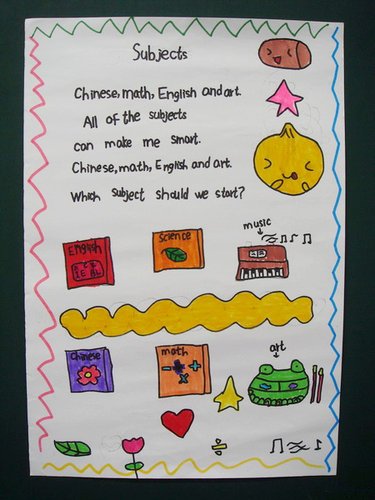 Subjects
Chinese, math, English and art.
All of the subjects
can make me smart.
Chinese, math, English and art.
Which subject should we start?
music
English
science
Chinese
math
art